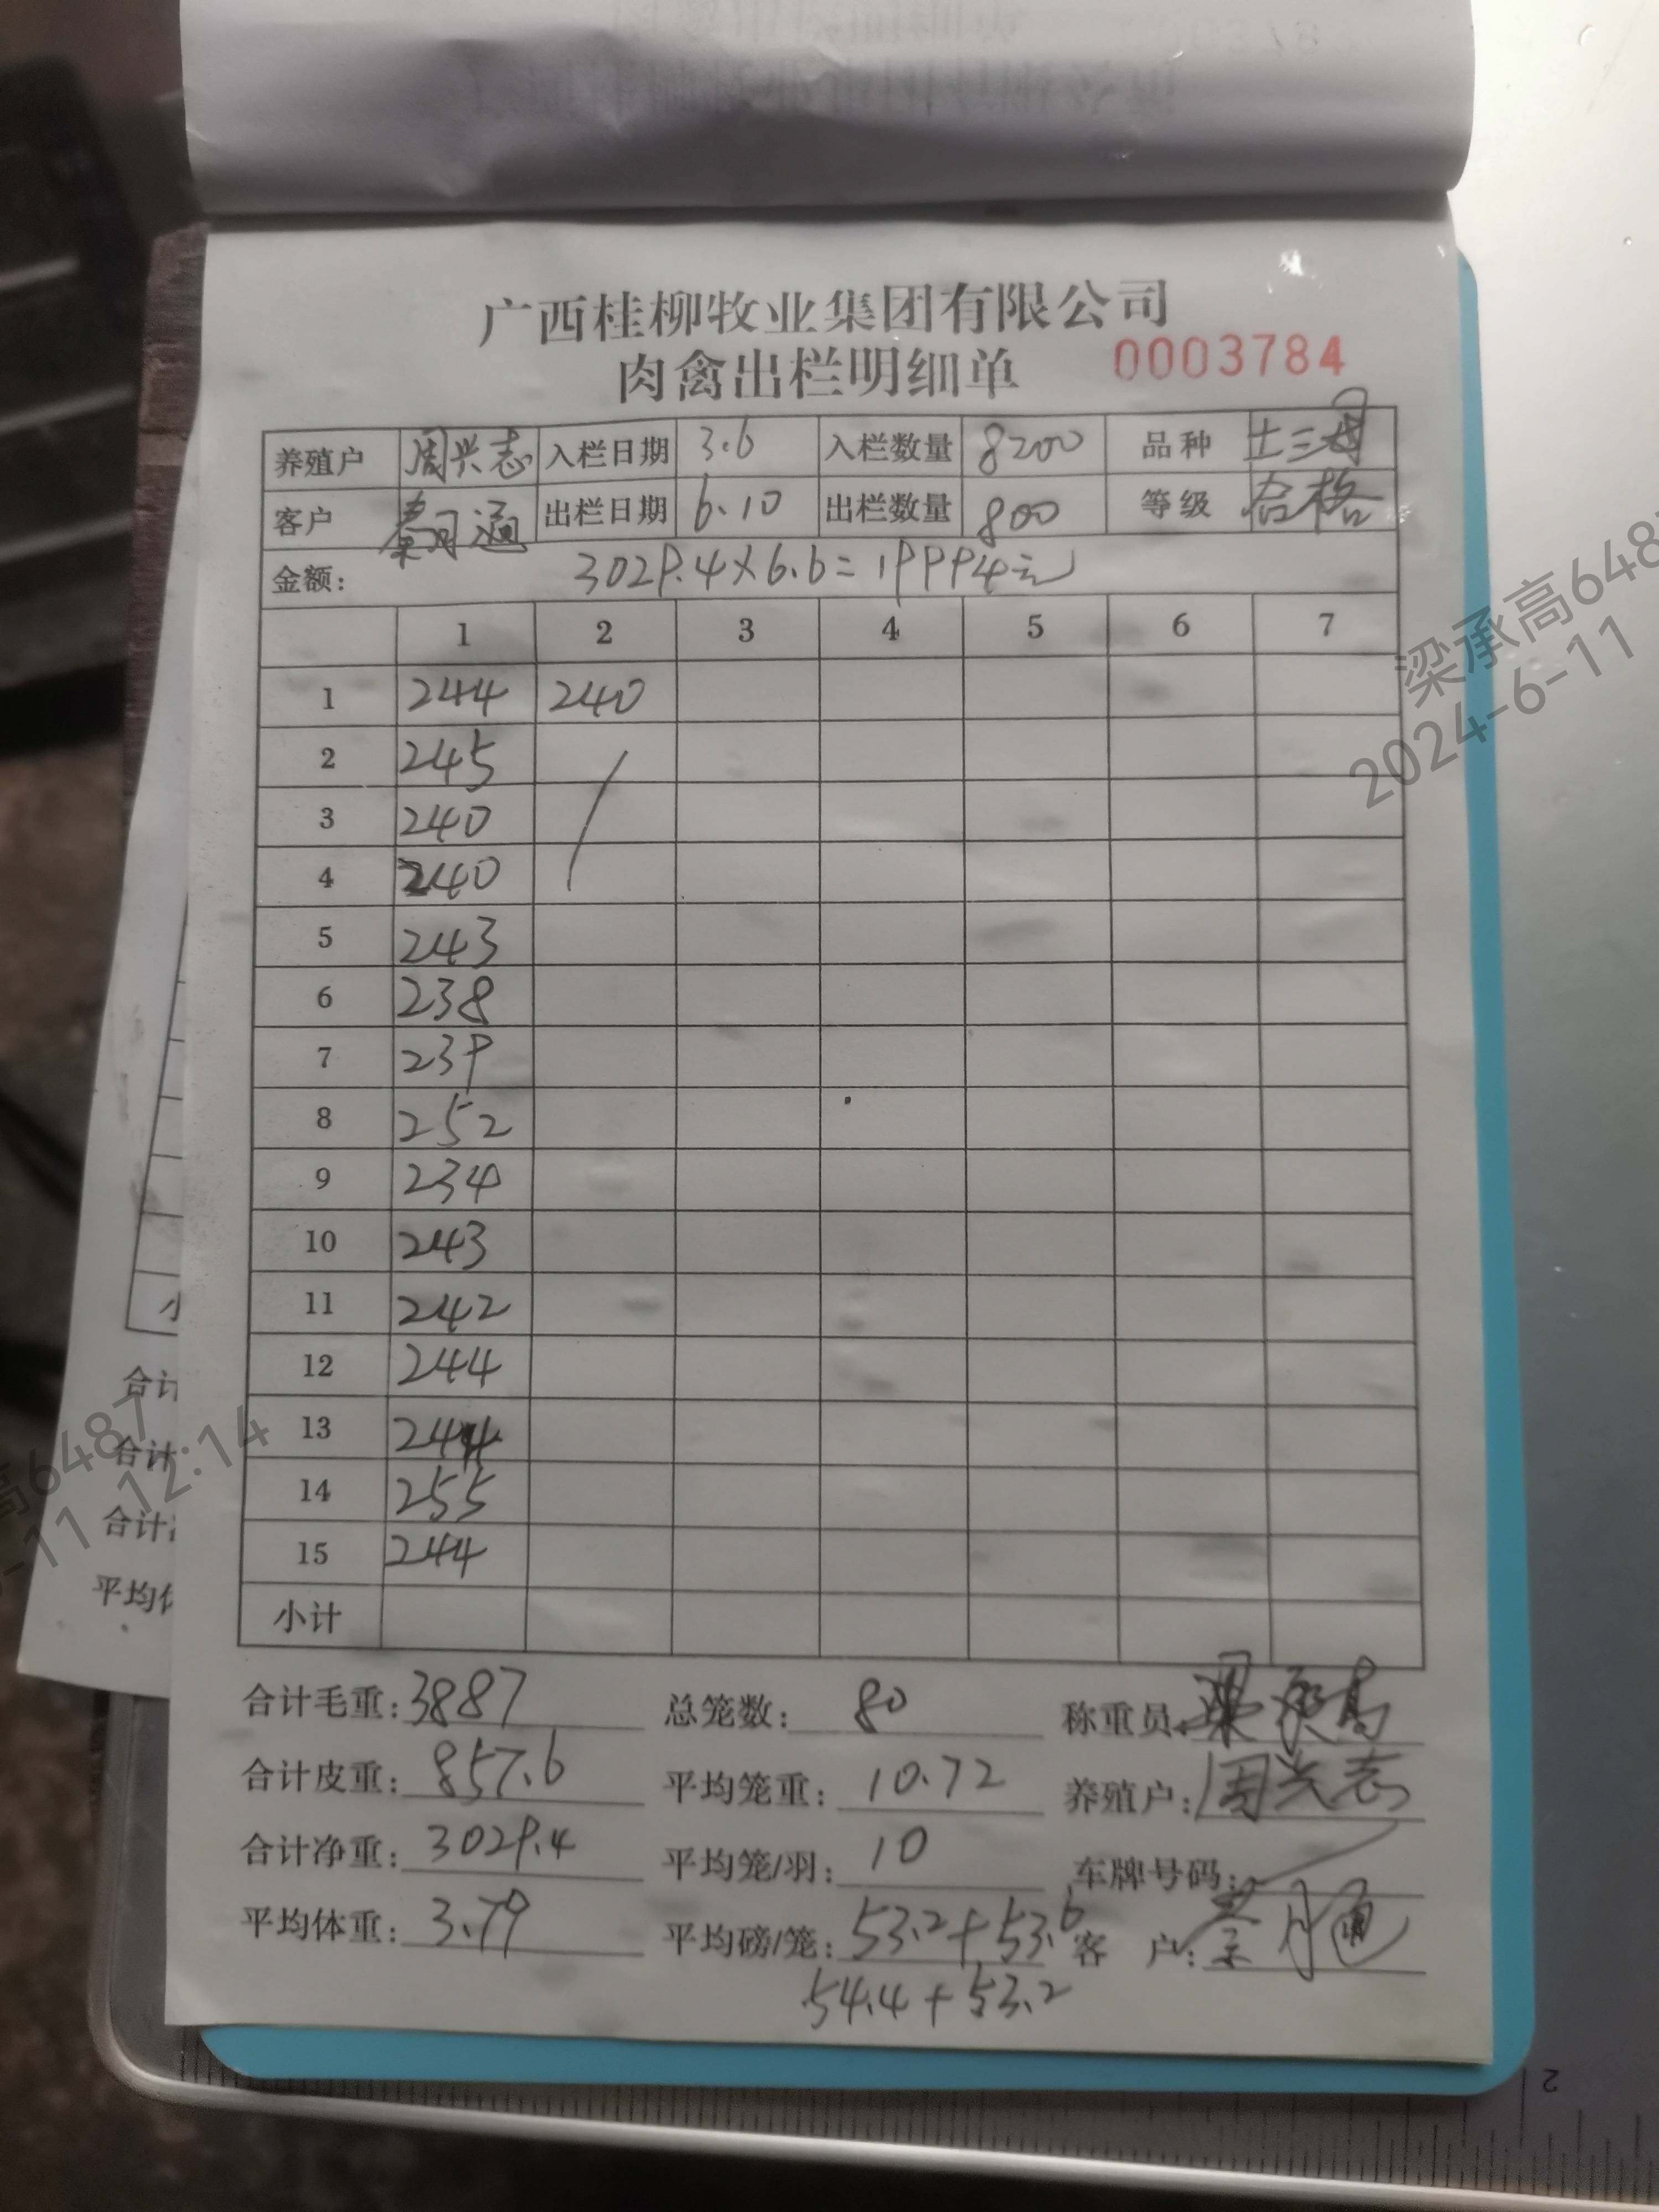 广西桂柳牧业集团有限公司
肉禽出栏明细单 0003784
养殖户 周兴志 入栏日期 3.6 入栏数量 8200 品种 土三月
客户 秦月通 出栏日期 6.10 出栏数量 800 等级 合格
金额: 3029.4×6.6=19994元
1 2 3 4 5 6 7
1 244 240
2 245
3 240
4 240
5 243
6 238
7 239
8 252
9 234
10 243
11 242
12 244
13 244
14 255
15 244
小计
合计毛重: 3887 总笼数: 80 称重员: 梁承高
合计皮重: 857.6 平均笼重: 10.72 养殖户: 周兴志
合计净重: 3029.4 平均笼/羽: 10 车牌号码:
平均体重: 3.79 平均磅/笼: 53.2+53.6 客 户: 秦月通
54.4+53.2
小
合计
合计
合计
平均体
梁承高648
2024-6-11
高6487
-11 12:14
2